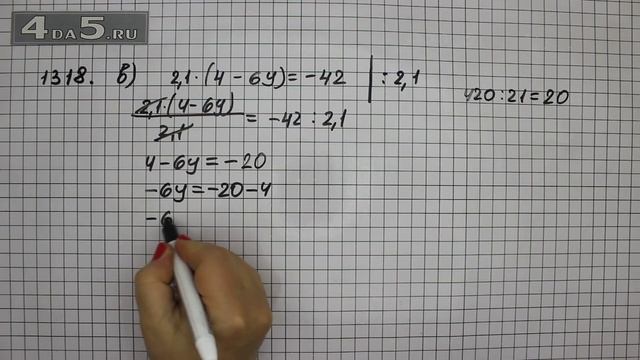 4DA5.RU
1318. в) 2,1·(4-6y)=-42 | :2,1
420:21=20
2,1·(4-6y)/2,1 = -42:2,1
4-6y=-20
-6y=-20-4
-6